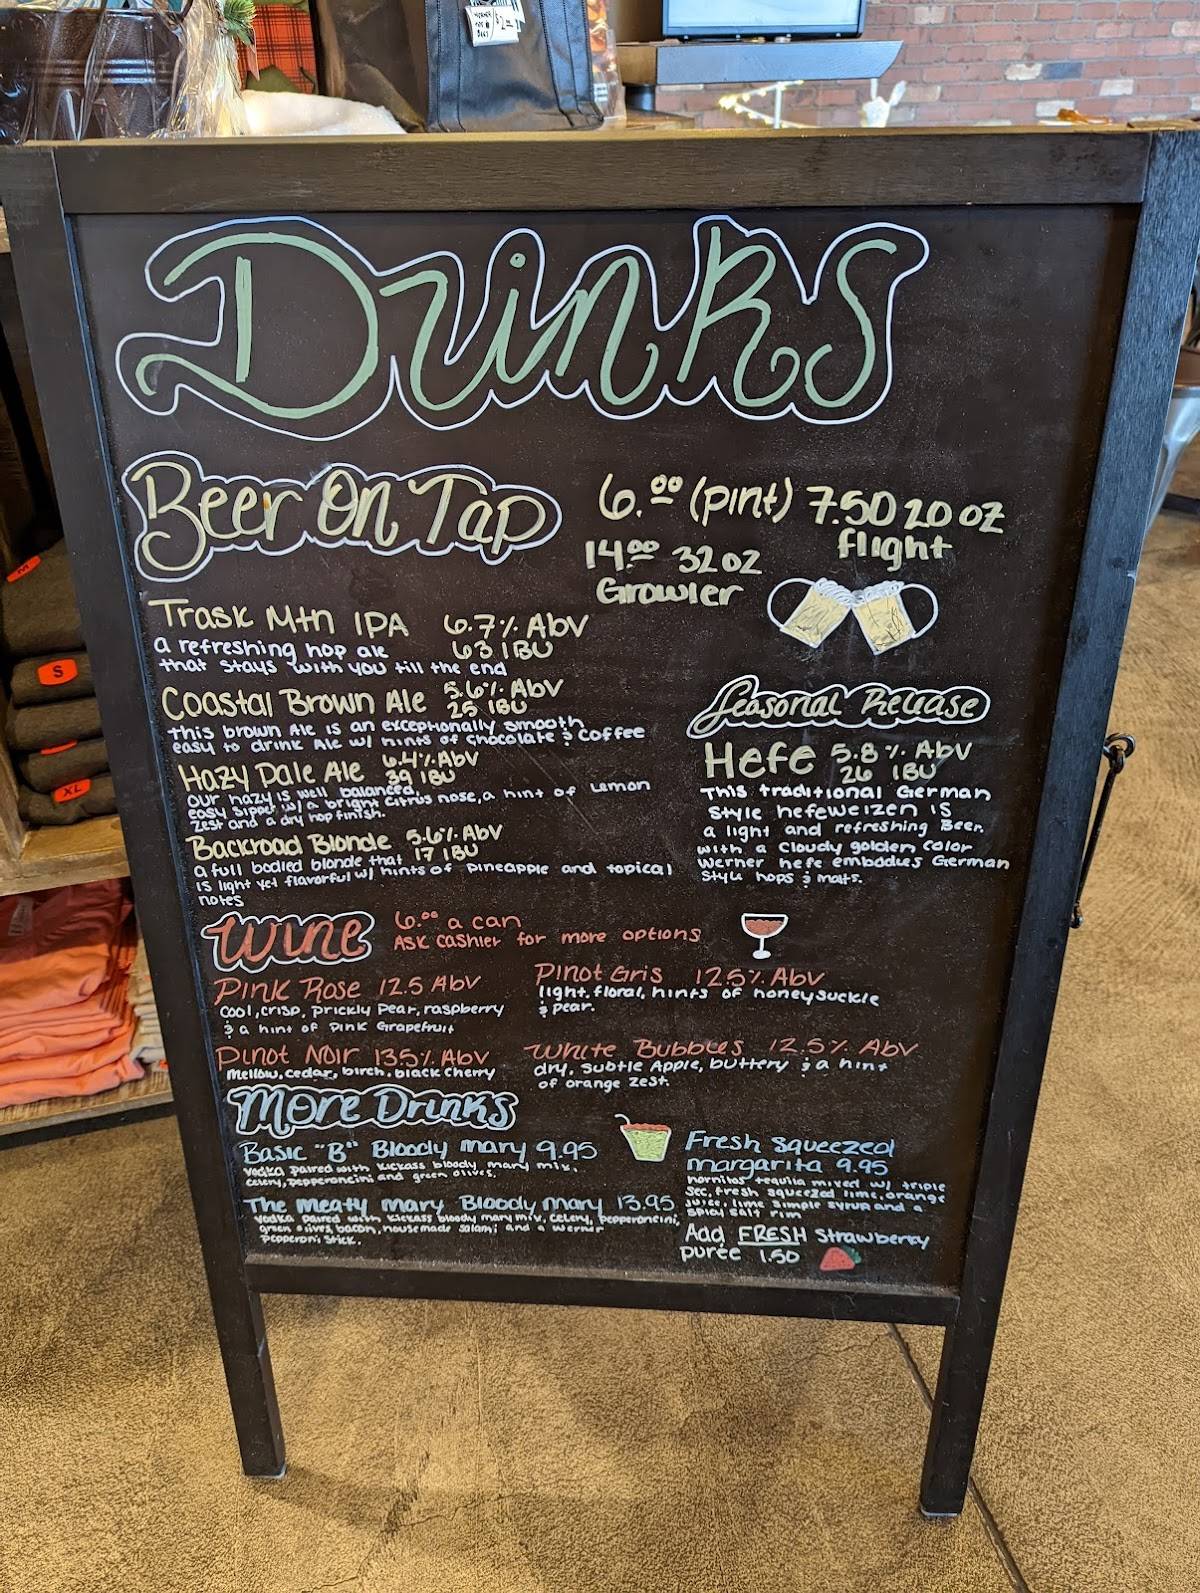 Drinks
Beer On Tap
6.00 (pint) 7.50 20 oz
flight
14.00 32oz
Growler
Trask Mtn IPA 6.7% Abv
63 IBU
a refreshing hop ale
that stays with you till the end
Coastal Brown Ale 5.6% Abv
25 IBU
this brown Ale is an exceptionally smooth
easy to drink Ale w/ hints of chocolate & coffee
Hazy Pale Ale 6.4% Abv
39 IBU
our hazy is well balanced,
easy sippy w/ a bright citrus nose, a hint of Lemon
zest and a dry hop finish.
Backroad Blonde 5.6% Abv
17 IBU
a full bodied blonde that
is light yet flavorful w/ hints of pineapple and topical
notes
Seasonal Release
Hefe 5.8% Abv
26 IBU
This traditional German
style hefeweizen is
a light and refreshing Beer.
with a cloudy golden color
Werner hefe embodies German
style hops & malts.
Wine 6.00 a can
Ask cashier for more options
Pink Rose 12.5 Abv
cool, crisp, prickly pear, raspberry
& a hint of Pink Grapefruit
Pinot Gris 12.5% Abv
light, floral, hints of honeysuckle
& pear.
Pinot Noir 13.5% Abv
mellow, cedar, birch, black cherry
White Bubbles 12.5% Abv
dry, subtle Apple, buttery & a hint
of orange zest.
More Drinks
Basic "B" Bloody Mary 9.95
vodka paired with kickass bloody mary mix,
celery, pepperoncini and green olives.
The Meaty Mary Bloody Mary 13.95
vodka paired with kickass bloody mary mix, celery, pepperoncini,
green olives, bacon, housemade salami and a Werner
pepperoni stick.
Fresh squeezed
margarita 9.95
hornitos tequila mixed w/ triple
sec, fresh squeezed lime, orange
juice, lime simple syrup and a
spicy salt rim
Add FRESH strawberry
purée 1.50
M
S
XL